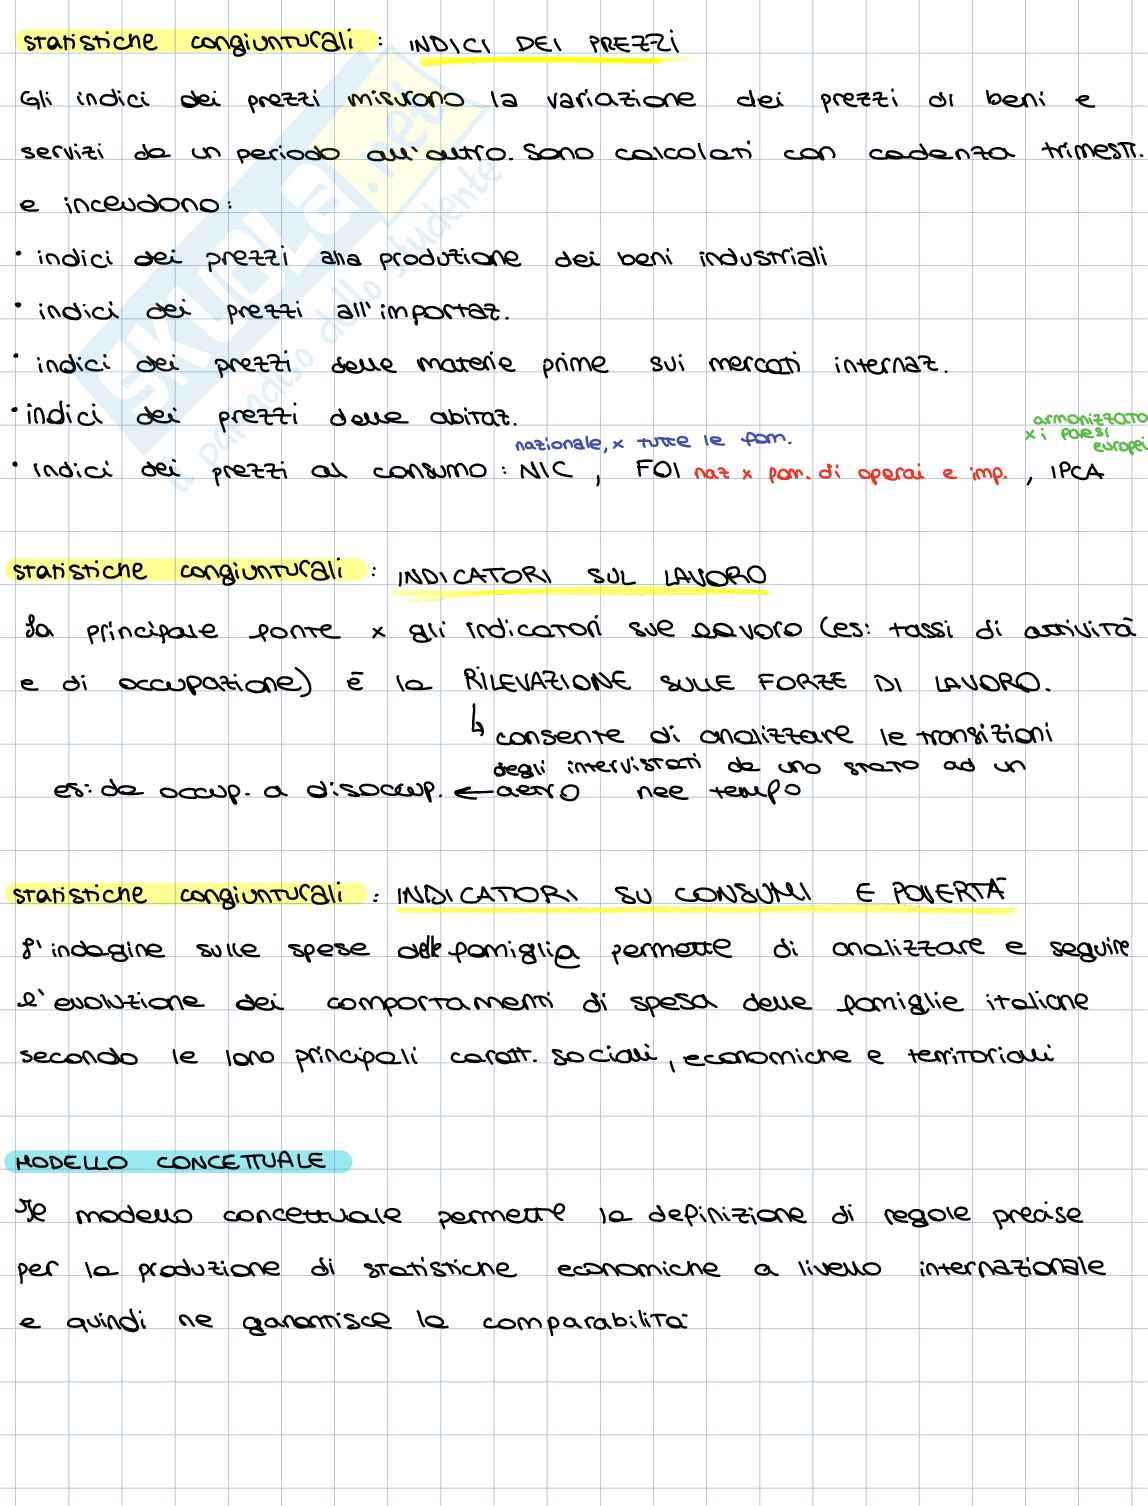 statistiche congiunturali : INDICI DEI PREZZI
Gli indici dei prezzi misurano la variazione dei prezzi di beni e
servizi da un periodo all'altro. Sono calcolati con cadenza trimestr.
e includono:
• indici dei prezzi alla produzione dei beni industriali
• indici dei prezzi all'importaz.
• indici dei prezzi delle materie prime sui mercati internaz.
• indici dei prezzi delle abitaz.
nazionale, x tutte le fam.
armonizzato
x i paesi
europei
• indici dei prezzi al consumo : NIC , FOI naz x fam. di operai e imp. , IPCA
statistiche congiunturali : INDICATORI SUL LAVORO
La principale fonte x gli indicatori sul lavoro (es: tassi di attività
e di occupazione) è la RILEVAZIONE SULLE FORZE DI LAVORO.
↳ consente di analizzare le transizioni
degli intervistati da uno stato ad un
es: da occup. a disoccup. ← altro nel tempo
statistiche congiunturali : INDICATORI SU CONSUMI E POVERTÀ
L'indagine sulle spese delle famiglia permette di analizzare e seguire
l'evoluzione dei comportamenti di spesa delle famiglie italiane
secondo le loro principali caratt. sociali, economiche e territoriali
MODELLO CONCETTUALE
Il modello concettuale permette la definizione di regole precise
per la produzione di statistiche economiche a livello internazionale
e quindi ne garantisce la comparabilità
SKUOLA.net
il paradiso dello studente